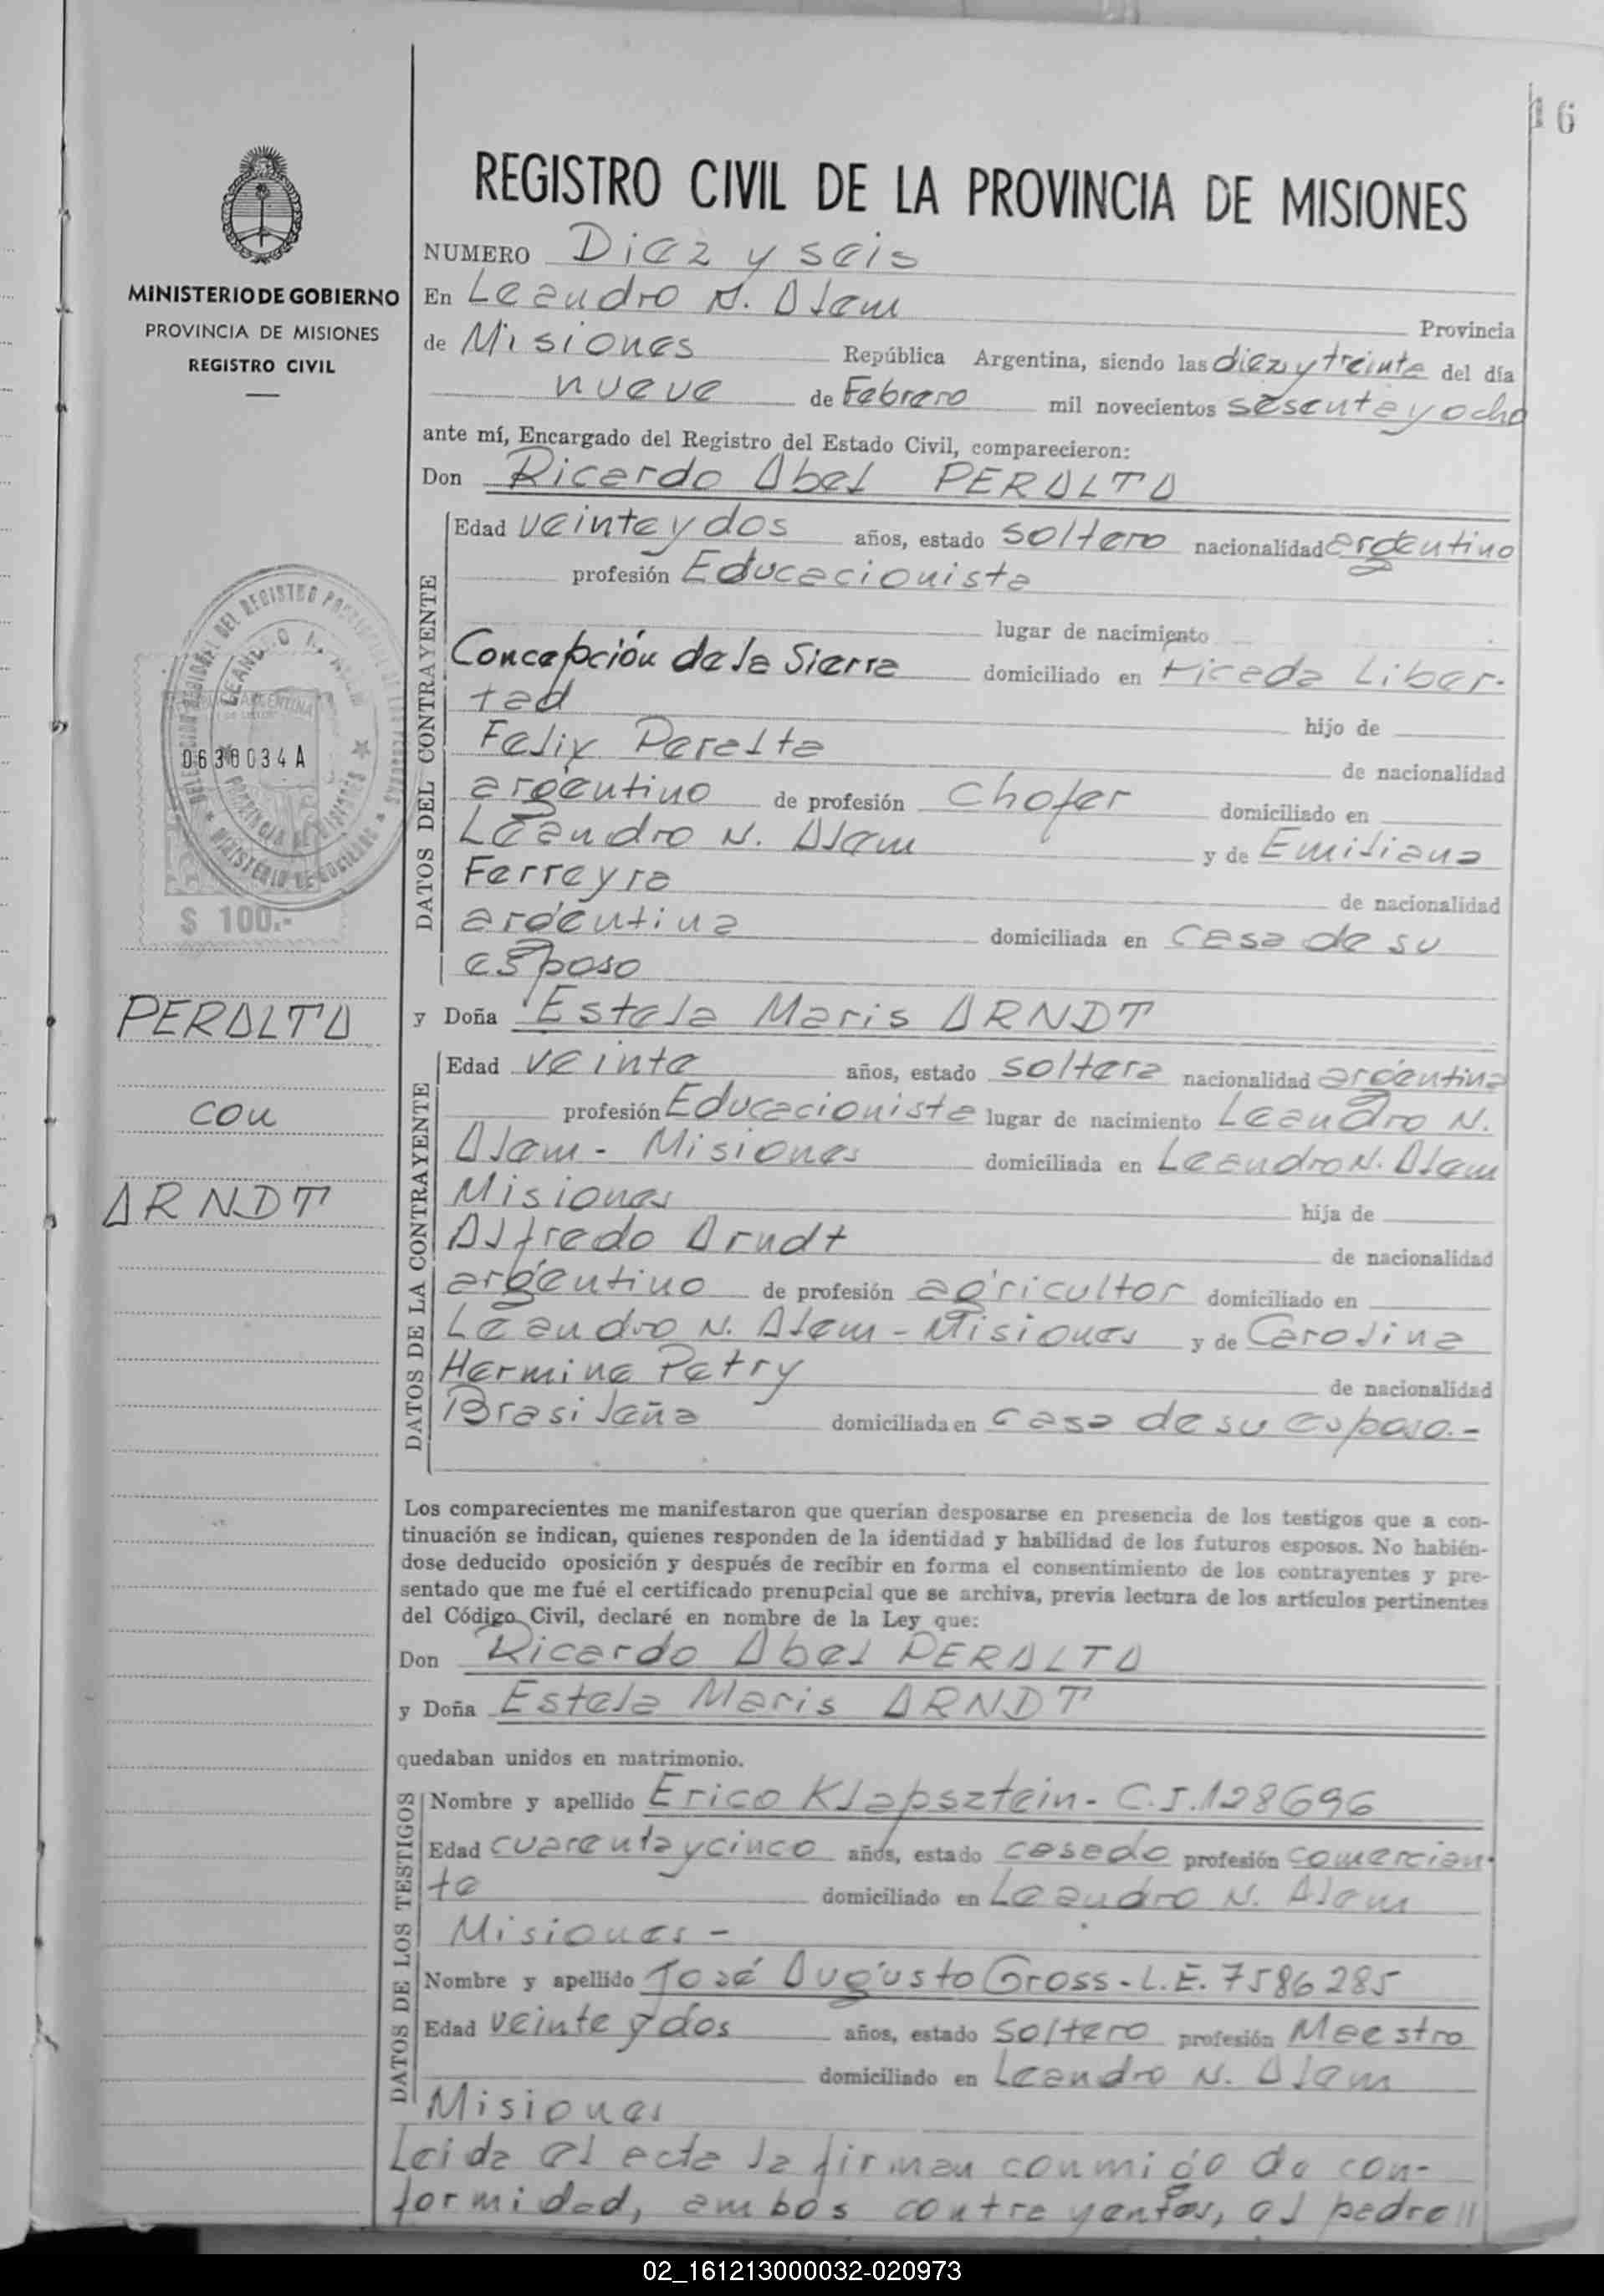 16
REGISTRO CIVIL DE LA PROVINCIA DE MISIONES
MINISTERIO DE GOBIERNO
PROVINCIA DE MISIONES
REGISTRO CIVIL
NUMERO Diez y seis
En Leandro N. Alem Provincia
de Misiones República Argentina, siendo las diez y treinta del día
nueve de Febrero mil novecientos sesenta y ocho
ante mí, Encargado del Registro del Estado Civil, comparecieron:
Don Ricardo Abel PERALTA
DATOS DEL CONTRAYENTE
Edad veinte y dos años, estado soltero nacionalidad argentino
profesión Educacionista
lugar de nacimiento
Concepción de la Sierra domiciliado en Picada Liber-
tad hijo de
Felix Peralta de nacionalidad
argentino de profesión Chofer domiciliado en
Leandro N. Alem y de Emiliana
Ferreyra de nacionalidad
argentina domiciliada en casa de su
esposo
LEANDRO N. ALEM
0630034A
PROVINCIA DE MISIONES
$ 100.-
PERALTA
con
ARNDT
y Doña Estela Maris ARNDT
DATOS DE LA CONTRAYENTE
Edad veinte años, estado soltera nacionalidad argentina
profesión Educacionista lugar de nacimiento Leandro N.
Alem - Misiones domiciliada en Leandro N. Alem
Misiones hija de
Alfredo Arndt de nacionalidad
argentino de profesión agricultor domiciliado en
Leandro N. Alem - Misiones y de Carolina
Hermine Petry de nacionalidad
Brasileña domiciliada en casa de su esposo.-
Los comparecientes me manifestaron que querían desposarse en presencia de los testigos que a con-
tinuación se indican, quienes responden de la identidad y habilidad de los futuros esposos. No habién-
dose deducido oposición y después de recibir en forma el consentimiento de los contrayentes y pre-
sentado que me fué el certificado prenupcial que se archiva, previa lectura de los artículos pertinentes
del Código Civil, declaré en nombre de la Ley que:
Don Ricardo Abel PERALTA
y Doña Estela Maris ARNDT
quedaban unidos en matrimonio.
DATOS DE LOS TESTIGOS
Nombre y apellido Erico Klapsztein - C.I. 128696
Edad cuarenta y cinco años, estado casado profesión comercian-
te domiciliado en Leandro N. Alem
Misiones -
Nombre y apellido José Augusto Gross - L.E. 7586285
Edad veinte y dos años, estado soltero profesión Maestro
domiciliado en Leandro N. Alem
Misiones
Leida el acta la firman conmigo de con-
formidad, ambos contrayentes, el padre //
02_161213000032-020973